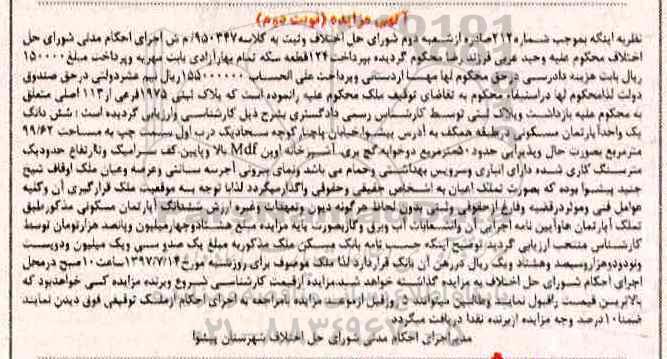 آگهی مزایده (نوبت دوم)
نظربه اینکه بموجب شماره ۲۱۲ صادره از شعبه دوم شورای حل اختلاف وثبت به کلاسه ۹۵۰۳۴۷/م ش اجرای احکام مدنی شورای حل
اختلاف محکوم علیه وحید عربی فرزند رضا محکوم گردیده بپرداخت ۱۲۴ قطعه سکه تمام بهار آزادی بابت مهریه وپرداخت مبلغ ۱۵۰۰۰۰
ریال بابت هزینه دادرسی در حق محکوم لها مهسا اردستانی وپرداخت علی الحساب ۱۵۵۰۰۰۰۰۰ ریال نیم عشر دولتی در حق صندوق
دولت لذا محکوم لها در استیفاء محکوم به تقاضای توقیف ملک محکوم علیه رانموده است که پلاک ثبتی ۱۹۷۵ فرعی از ۱۱۳ اصلی متعلق
به محکوم علیه بازداشت وپلاک ثبتی توسط کارشناس رسمی دادگستری بشرح ذیل کارشناسی وارزیابی گردیده است: شش دانگ
یک واحد آپارتمان مسکونی در طبقه همکف به آدرس پیشوا خیابان پاچنار کوچه سجادیک درب اول سمت چپ به مساحت ۹۹/۶۲
مترمربع بصورت حال وپذیرایی حدود ۵۰ مترمربع دوخوابه گچ بری. آشپزخانه اوپن Mdf بالا وپایین کف سرامیک وتاارتفاع حدودیک
متر سنگ کاری شده دارای انباری وسرویس بهداشتی وحمام می باشد ونمای بیرونی آجرسه سانتی وعرصه وعیان ملک اوقاف شیح
جنید پیشوا بوده که بصورت تملک اعیان به اشخاص حقیقی وحقوقی واگذار میگردد لذا با توجه به موقعیت ملک قرارگیری آن وکلیه
عوامل فنی وموثر در قضیه وفارغ از حقوقی وثبتی بدون لحاظ هرگونه دیون وتعهدات وغیره ارزش ششدانگ آپارتمان مسکونی مذکور طبق
تملک آپارتمان هاوآیین نامه اجرایی آن وانشعابات آب وبرق وگاز بصورت پایه مزایده مبلغ هشتاد وچهار میلیون وپانصد هزار تومان توسط
کارشناس منتخب ارزیابی گردید. توضیح اینکه حسب نامه بانک مسکن ملک مذکور به مبلغ یک صد و سی ویک میلیون ودویست
ونود ودو هزار وسیصد وهشتاد ویک ریال در رهن آن بانک قرار دارد لذا ملک موصوف برای روز شنبه مورخ ۱۳۹۷/۷/۱۴ ساعت ۱۰ صبح در محل
اجرای احکام شورای حل اختلاف به مزایده گذاشته خواهد شد. مزایده از قیمت کارشناسی شروع وبرنده مزایده کسی خواهد بود که
بالاترین قیمت را قبول نمایند وطالبین میتوانند ۵ روز قبل از موعد مزایده با مراجعه به اجرای احکام از ملک توقیفی فوق دیدن نمایند
ضمنا ۱۰ درصد وجه مزایده از برنده نقدا دریافت میگردد
مدیر اجرای احکام مدنی شورای حل اختلاف شهرستان پیشوا